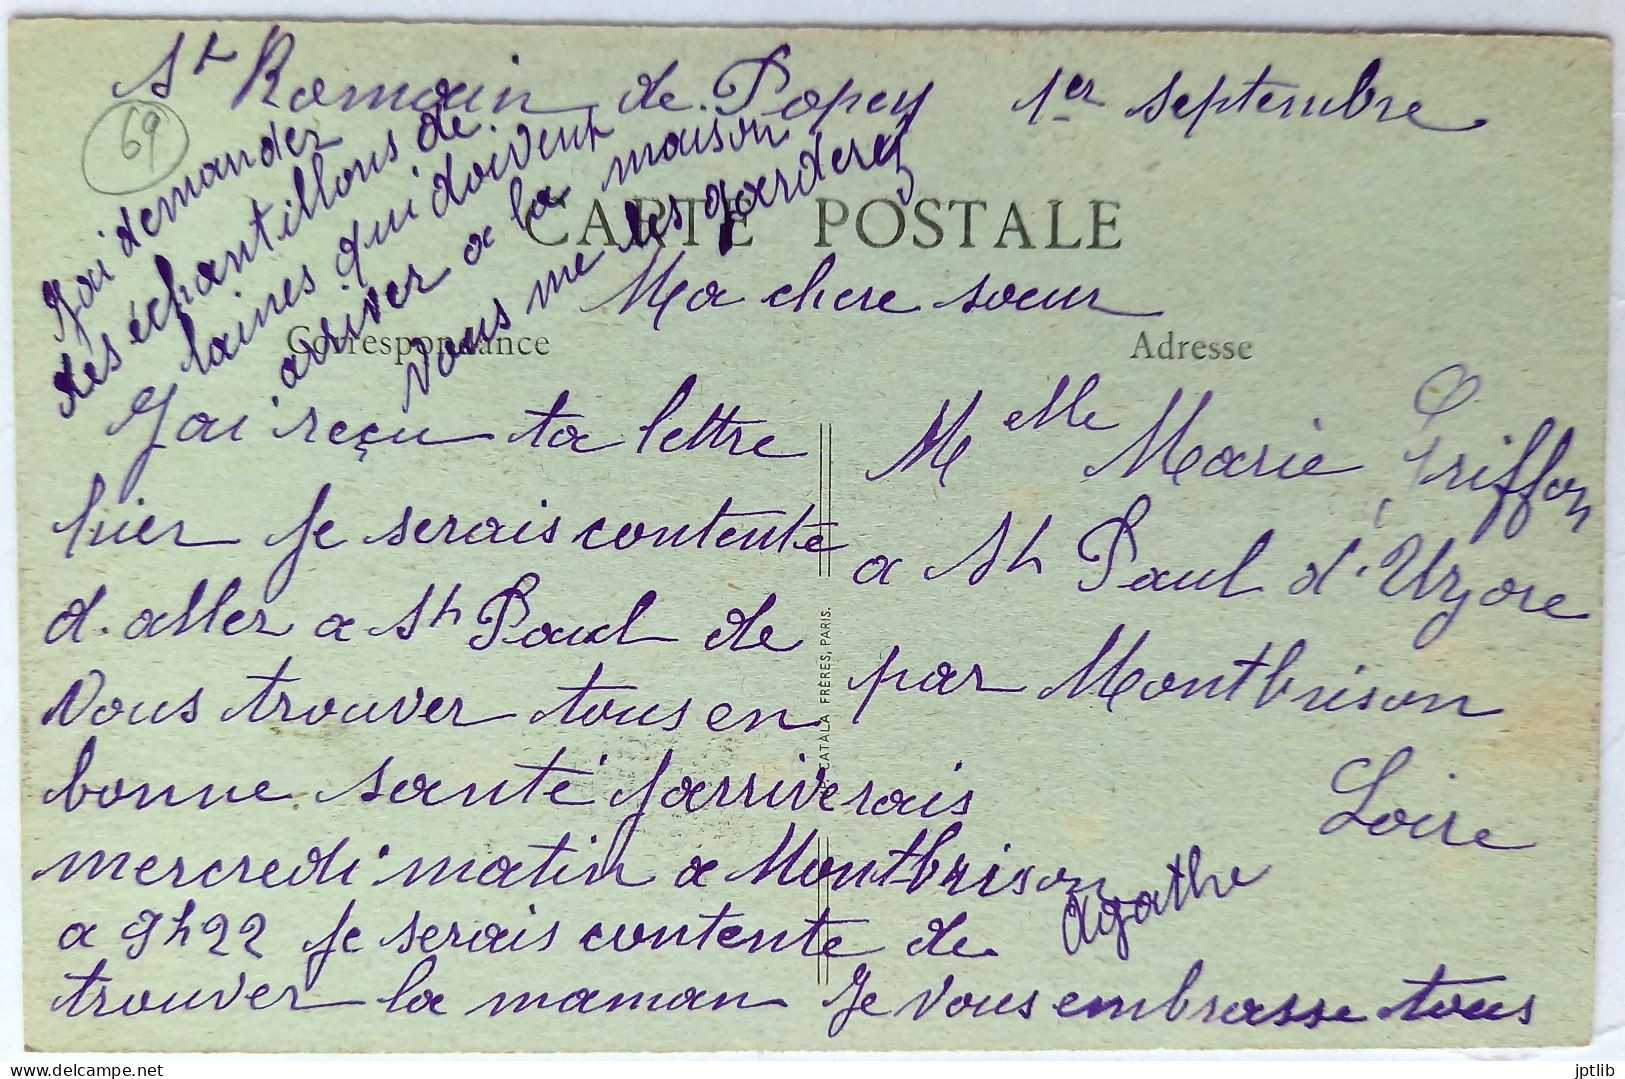 St Romain de Popey 1er septembre
69
J'ai demander
des échantillons de
laines qui doivent
arriver a la maison
vous me les garderez
CARTE POSTALE
Ma chere soeur
Correspondance
Adresse
J'ai reçu ta lettre
hier je serais contente
d.aller a St Paul de
vous trouver tous en
bonne santé j'arriverais
mercredi matin a Montbrison
a 9h22 je serais contente de
trouver la maman Je vous embrasse tous
Agathe
Melle Marie Griffon
a St Paul d'Uzore
par Montbrison
Loire
CATALA FRÈRES, PARIS.
delcampe.net
jptlib